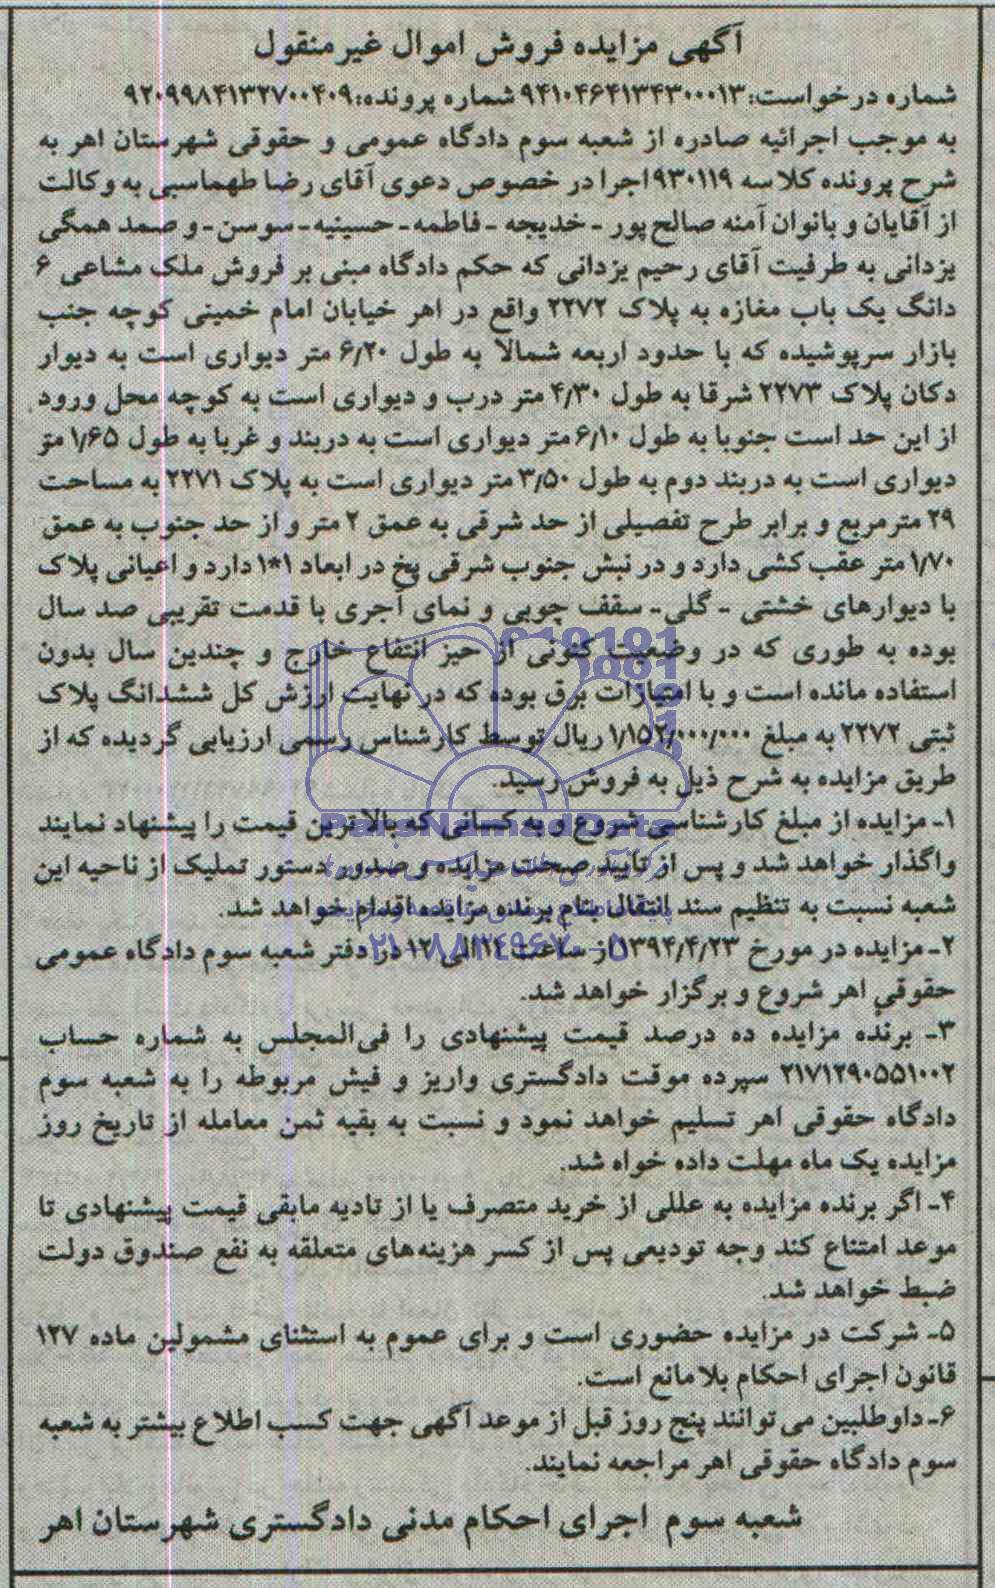 آگهی مزایده فروش اموال غیرمنقول
شماره درخواست: ۹۴۱۰۴۶۴۱۳۴۳۰۰۰۱۳ شماره پرونده: ۹۲۰۹۹۸۴۱۳۲۷۰۰۴۰۹
به موجب اجرائیه صادره از شعبه سوم دادگاه عمومی و حقوقی شهرستان اهر به
شرح پرونده کلاسه ۹۳۰۱۱۹ اجرا در خصوص دعوی آقای رضا طهماسبی به وکالت
از آقایان و بانوان آمنه صالح پور - خدیجه - فاطمه - حسینیه - سوسن - و صمد همگی
یزدانی به طرفیت آقای رحیم یزدانی که حکم دادگاه مبنی بر فروش ملک مشاعی ۶
دانگ یک باب مغازه به پلاک ۲۲۷۲ واقع در اهر خیابان امام خمینی کوچه جنب
بازار سرپوشیده که با حدود اربعه شمالا به طول ۶/۲۰ متر دیواری است به دیوار
دکان پلاک ۲۲۷۳ شرقا به طول ۴/۳۰ متر درب و دیواری است به کوچه محل ورود
از این حد است جنوبا به طول ۶/۱۰ متر دیواری است به دربند و غربا به طول ۱/۶۵ متر
دیواری است به دربند دوم به طول ۳/۵۰ متر دیواری است به پلاک ۲۲۷۱ به مساحت
۲۹ مترمربع و برابر طرح تفصیلی از حد شرقی به عمق ۲ متر و از حد جنوب به عمق
۱/۷۰ متر عقب کشی دارد و در نبش جنوب شرقی پخ در ابعاد ۱*۱ دارد و اعیانی پلاک
با دیوارهای خشتی - گلی - سقف چوبی و نمای آجری با قدمت تقریبی صد سال
بوده به طوری که در وضعیت کنونی از حیز انتفاع خارج و چندین سال بدون
استفاده مانده است و با امتیازات برق بوده که در نهایت ارزش کل ششدانگ پلاک
ثبتی ۲۲۷۲ به مبلغ ۱/۱۵۲/۰۰۰/۰۰۰ ریال توسط کارشناس رسمی ارزیابی گردیده که از
طریق مزایده به شرح ذیل به فروش رسید.
۱- مزایده از مبلغ کارشناسی شروع و به کسانی که بالاترین قیمت را پیشنهاد نمایند
واگذار خواهد شد و پس از تایید صحت مزایده و صدور دستور تملیک از ناحیه این
شعبه نسبت به تنظیم سند انتقال بنام برنده مزایده اقدام خواهد شد.
۲- مزایده در مورخ ۱۳۹۴/۴/۲۳ از ساعت الی ۱۲ در دفتر شعبه سوم دادگاه عمومی
حقوقی اهر شروع و برگزار خواهد شد.
۳- برنده مزایده ده درصد قیمت پیشنهادی را فی‌المجلس به شماره حساب
۲۱۷۱۲۹۰۵۵۱۰۰۲ سپرده موقت دادگستری واریز و فیش مربوطه را به شعبه سوم
دادگاه حقوقی اهر تسلیم خواهد نمود و نسبت به بقیه ثمن معامله از تاریخ روز
مزایده یک ماه مهلت داده خواه شد.
۴- اگر برنده مزایده به عللی از خرید متصرف یا از تادیه مابقی قیمت پیشنهادی تا
موعد امتناع کند وجه تودیعی پس از کسر هزینه‌های متعلقه به نفع صندوق دولت
ضبط خواهد شد.
۵- شرکت در مزایده حضوری است و برای عموم به استثنای مشمولین ماده ۱۲۷
قانون اجرای احکام بلامانع است.
۶- داوطلبین می توانند پنج روز قبل از موعد آگهی جهت کسب اطلاع بیشتر به شعبه
سوم دادگاه حقوقی اهر مراجعه نمایند.
شعبه سوم اجرای احکام مدنی دادگستری شهرستان اهر
ParsNamadData